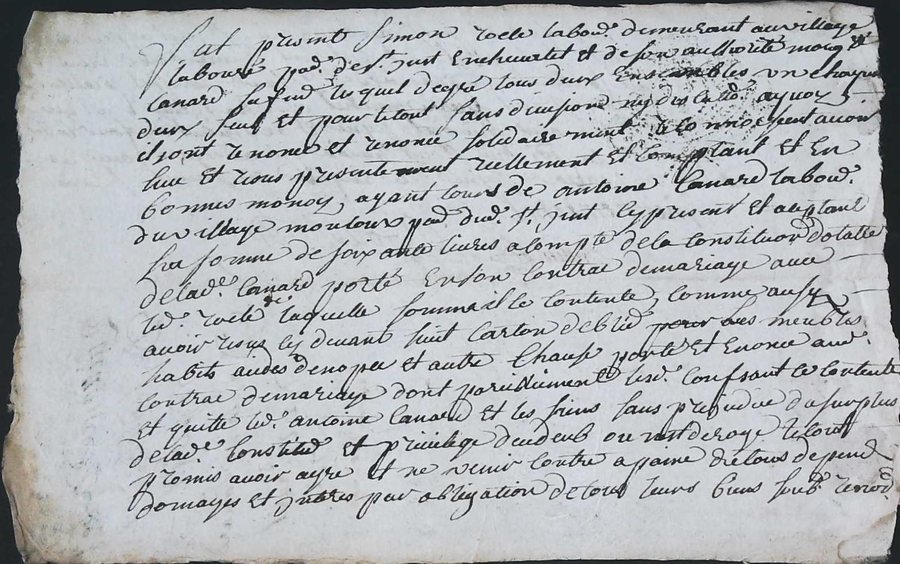 fut present Simon rocle labour. demeurant au village
laboure pad. de st. just Enchevalet et de son authorité
Canard sa fme lesquel de gre tous deux Ensembles un chaqun
deux seul et pour le tout sans division ny des
ils ont renoncé et renonce solidairement reconnoissent avoir
hue et reçus presentement reellement et Comptant et En
bonnes monoy, ayant cours de antoine Canard labour.
du village pad. dud. st. just cy present et aceptant
la somme de soixante livres a compte de la Constitution dotalle
de lade. Canard porté En son Contrac de mariage avec
led. rocle laquelle somme il se contente, comme aussy
avoir reçus cy devant huit carton de bled meubles
habits et autre Chause porté et Enoncé aud.
Contrac de mariage dont pareillement lesd. Confsant se contente
et quite led. antoine Canard et les siens sans prejudice du surplus
de lade. Constituon et privilege ou
promis avoir agre et ne venir contre a paine de tous depend
domages et par obligation de tous leurs biens